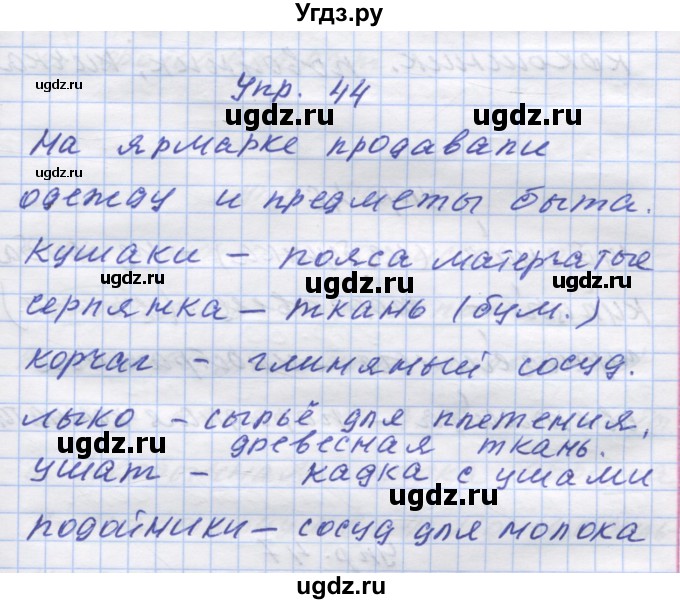 Угдз.ру
ugdz.ru
Упр. 44
ugdz.ru ugdz.ru
На ярмарке продавали
ugdz.ru
одежду и предметы быта.
ugdz.ru
Кушаки – пояса матерчатые
ugdz.ru ugdz.ru ugdz.ru
серпянка – ткань (бум.)
ugdz.ru
корчаг – глиняный сосуд.
ugdz.ru
лыко – сырьё для плетения,
ugdz.ru древесная ткань.
ушат – кадка с ушами
ugdz.ru
подойники – сосуд для молока
ugdz.ru
ugdz.ru